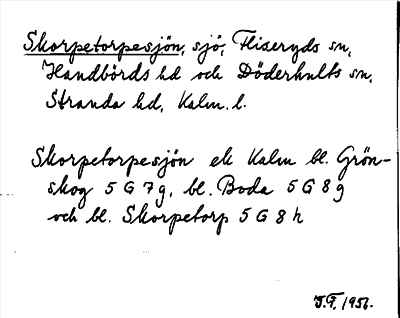 Skorpetorpesjön, sjö, Fliseryds sn,
Handbörds hd och Döderhults sn,
Stranda hd, Kalm. l.
Skorpetorpesjön ek Kalm bl. Grön-
skog 5 G 7 g, bl. Boda 5 G 8 g
och bl. Skorpetorp 5 G 8 h
J.F. 1956.